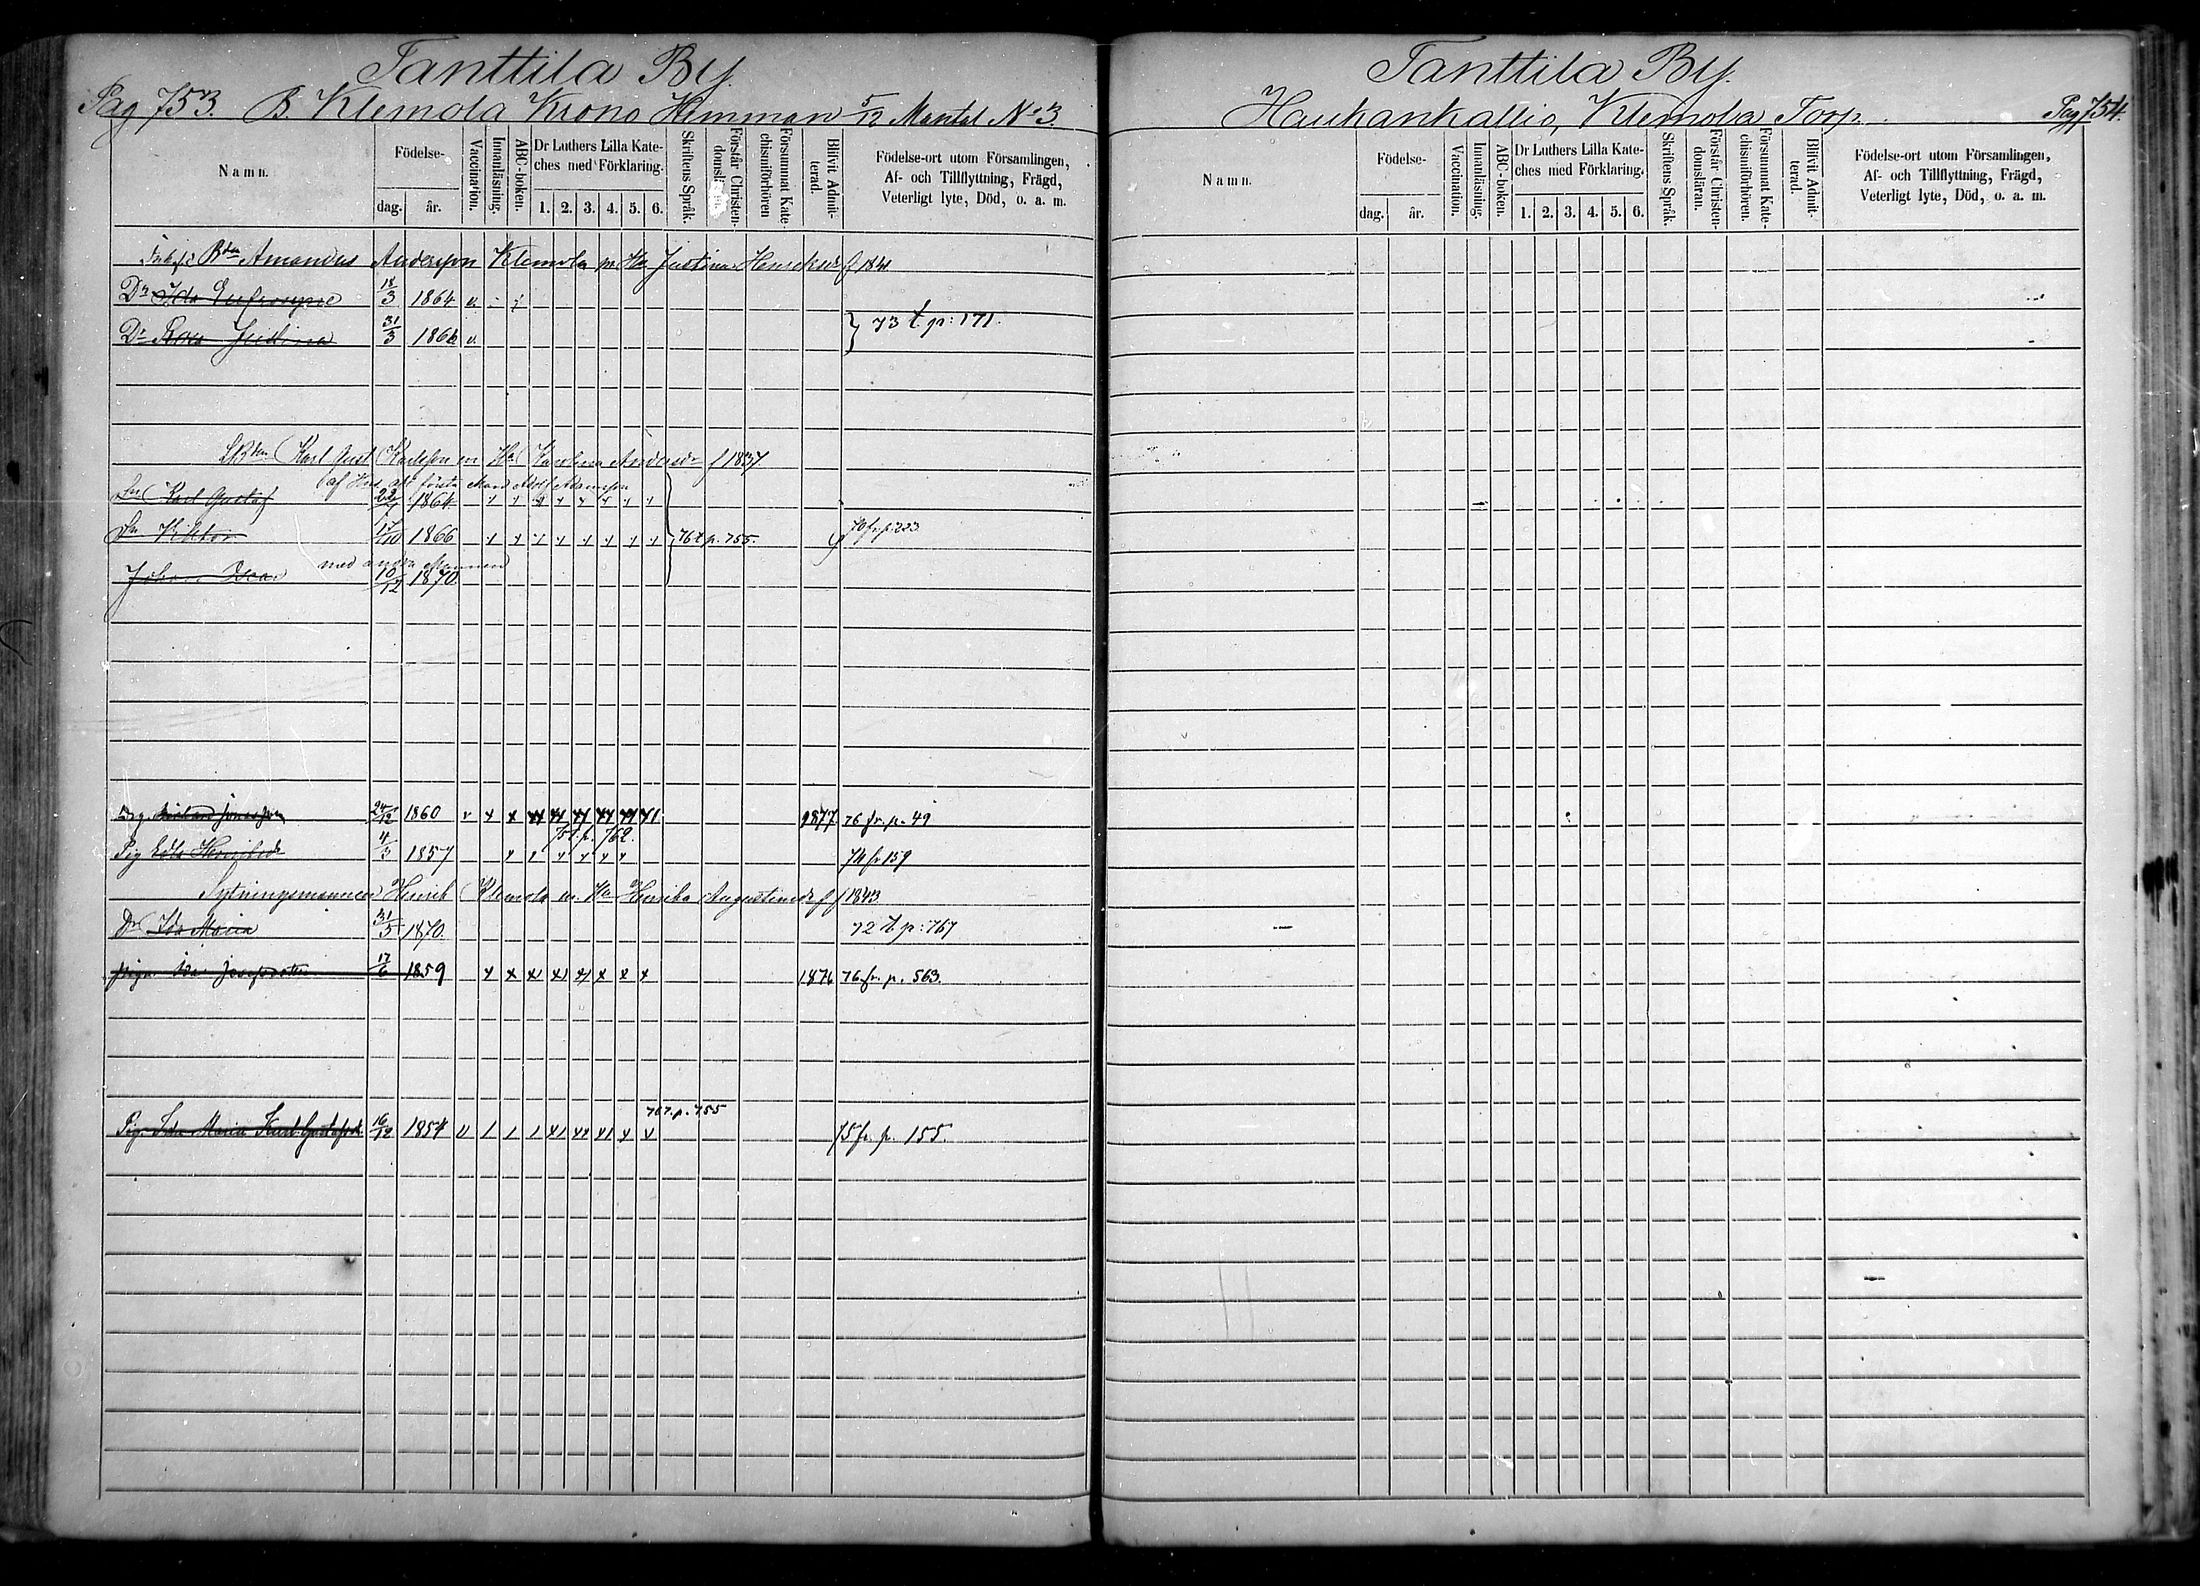 Tanttila By.
Pag 753. B. Klemola Krono Hemman 5/12 Mantal No 3.
Namn.
Födelse-
dag. år.
Vaccination.
Innanläsning.
ABC-boken.
Dr Luthers Lilla Kate-
ches med Förklaring.
1. 2. 3. 4. 5. 6.
Skriftens Språk.
Förstår Christen-
Försummat Kate-
chismiförhören
Blifvit Admit-
terad.
Födelse-ort utom Församlingen,
Af- och Tillflyttning, Frägd,
Veterligt lyte, Död, o. a. m.
Amandus Andersson Klemola m Hu Justina f 1841
Dr Ida Eufrosyne 18/3 1864
Dr Rosa Justina 31/3 186
73 t. p: 171.
Karl Gust Karlsson m Hu Karolina Andersdr f 1837
af Hus första Man Adolf Adamsson
Sn Karl Gustaf 1864
Sn Viktor 17/10 1866 76 t p. 755. 70 fr p 223
med andra Mannen
Johan 10/12 1870.
Drg. 24/12 1860 v 1877 76 fr. p. 49
75 t. p. 762.
Pig Edla Henriksdr 4/3 1857 74 fr 159
Sytningsmannen Henrik Klemola m. Hu Henrika Augustinsdr f 1843.
Dr Ida Maria 31/5 1870. 72 t p: 767
pigan Ida Josefsdotter 17/6 1859 1876 76 fr. p. 563.
76 t. p. 755
Pig. Ida Maria Karl Gustafsd 16/12 1854 75 fr. p. 155.
Tanttila By.
Haukankallio, Klemola Torp. Pag 754.
Namn.
Födelse-
dag. år.
Vaccination.
Innanläsning.
ABC-boken.
Dr Luthers Lilla Kate-
ches med Förklaring.
1. 2. 3. 4. 5. 6.
Skriftens Språk.
Förstår Christen-
domsläran.
Försummat Kate-
chismiförhören.
Blifvit Admit-
terad.
Födelse-ort utom Församlingen,
Af- och Tillflyttning, Frägd,
Veterligt lyte, Död, o. a. m.